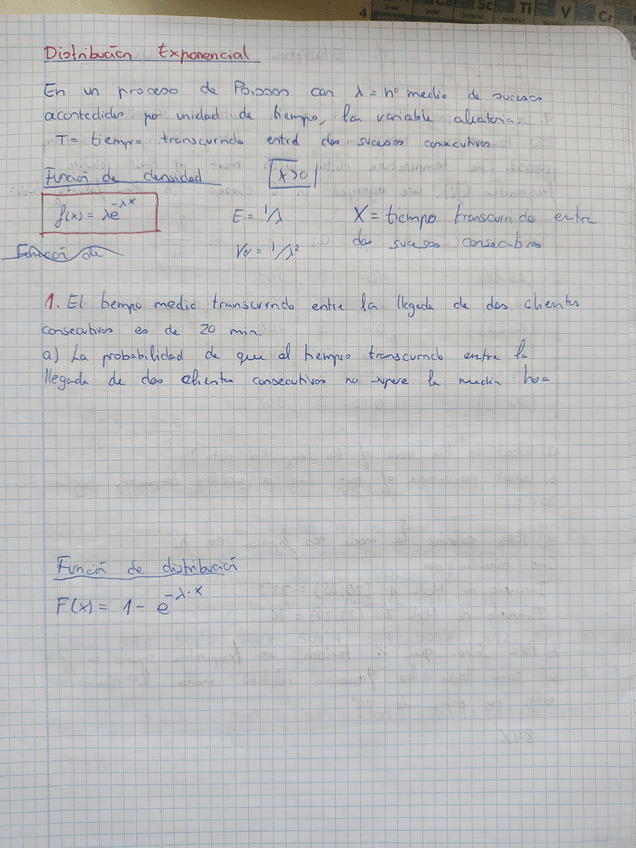 4 Sc Ti V Cr
Distribución Exponencial
En un proceso de Poisson con λ = nº medio de sucesos
acontecidos por unidad de tiempo, la variable aleatoria:
T = tiempo transcurrido entre dos sucesos consecutivos.
Función de densidad x>0
f(x) = λe^-λx E = 1/λ X = tiempo transcurrido entre
Función de Var = 1/λ² dos sucesos consecutivos
1. El tiempo medio transcurrido entre la llegada de dos clientes
consecutivos es de 20 min.
a) La probabilidad de que el tiempo transcurrido entre la
llegada de dos clientes consecutivos no supere la media hora
Función de distribución
F(x) = 1 - e^-λ·x